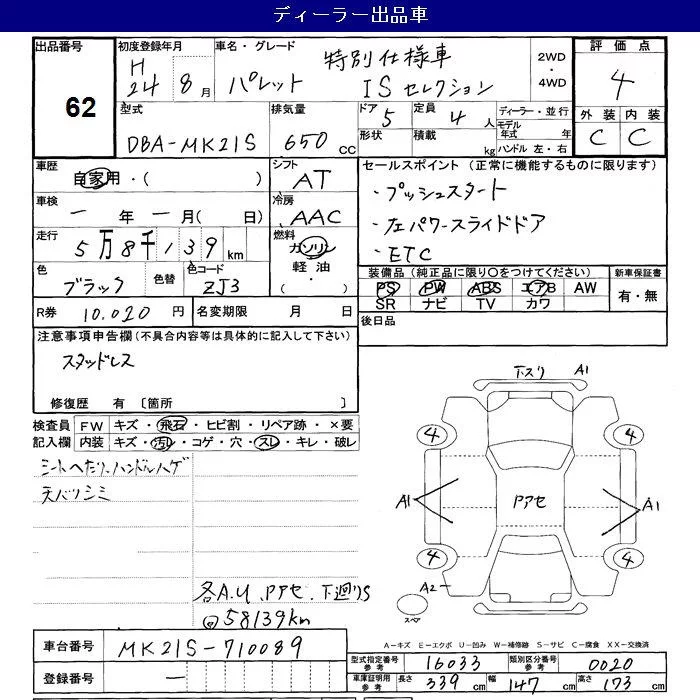 ディーラー出品車
出品番号 62
初度登録年月 H24 8月
車名・グレード パレット 特別仕様車 ISセレクション
2WD・4WD
評価点 4
外装 C 内装 C
型式 DBA-MK21S
排気量 650cc
ドア 5 形状
定員 4人 積載 kg
ディーラー・並行 モデル年式 年 ハンドル 左・右
車歴 自家用・( )
シフト AT
車検 一年一月( 日)
冷房 AAC
走行 5万8千139km
燃料 ガソリン 軽油・( )
色 ブラック 色替 色コード ZJ3
R券 10.020円 名変期限 月 日
セールスポイント(正常に機能するものに限ります)
・プッシュスタート
・左パワースライドドア
・ETC
装備品(純正品に限り○をつけてください)
PS PW ABS エアB AW
SR ナビ TV カワ
新車保証書 有・無
後日品
注意事項申告欄(不具合内容等は具体的に記入して下さい)
スタッドレス
修復歴 有〔箇所 〕
検査員記入欄
FW キズ・飛石・ヒビ割・リペア跡・×要
内装 キズ・汚レ・コゲ・穴・スレ・キレ・破レ
シートヘタリ、ハンドルハゲ
天バリシミ
各A.U、PアセP、下廻りS
58139km
下スリ A1
4 4
A1 Pアセ A1
4 4
A2
スペア
A-キズ E-エクボ U-凹み W-補修跡 S-サビ C-腐食 XX-交換済
車台番号 MK21S-710089
登録番号 一
型式指定番号参考 16033 類別区分番号参考 0020
車庫証明用参考 長さ 339cm 幅 147cm 高さ 173cm